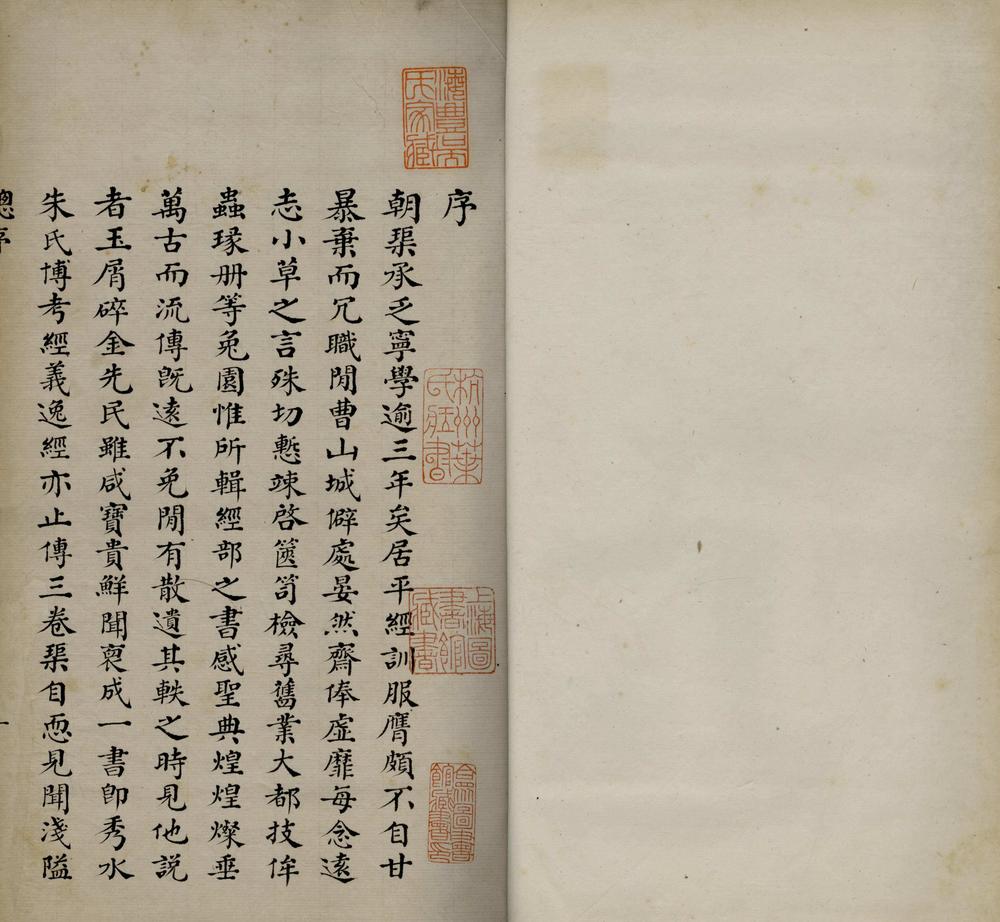 序
朝琹承乏寧學逾三年矣居平經訓服膺頗不自甘
暴棄而冗職閒曹山城僻處晏然齋俸虛靡每念遠
志小草之言殊切慙竦啓篋笥檢尋舊業大都技侔
蟲瑑册等兔園惟所輯經部之書感聖典煌煌燦垂
萬古而流傳旣遠不免閒有散遺其軼之時見他說
者玉屑碎金先民雖咸寶貴鮮聞裒成一書卽秀水
朱氏博考經義逸經亦止傳三卷琹自恧見聞淺隘
總序
一
海豐吳氏家藏
杭州葉氏藏書
上海圖書館藏書
圖書館藏書